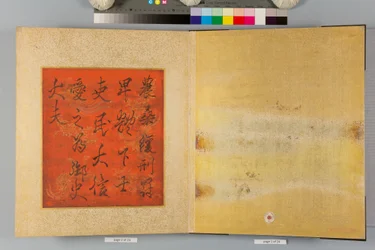 農桑緩刑罰
卑體下士
吏民大信
愛之為御史
大夫